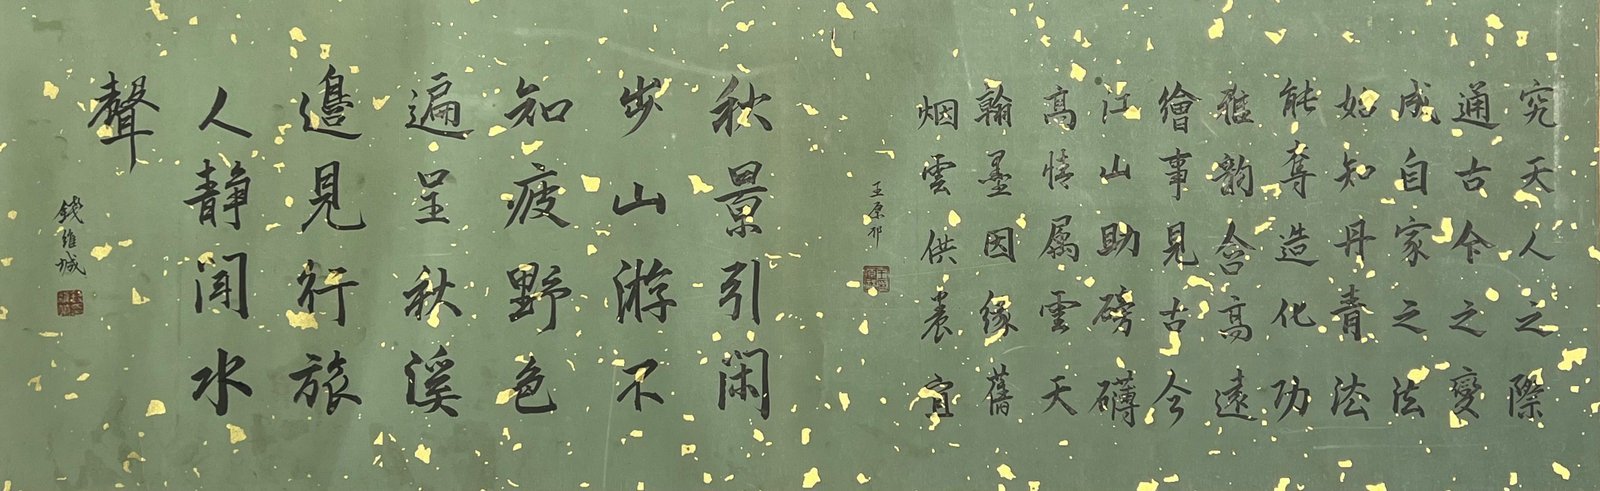 究天人之際
通古今之變
成自家之法
始知丹青法
能奪造化功
雅韵含高遠
繪事見古今
江山助磅礴
高情屬雲天
翰墨因緣舊
烟雲供養宜
王原祁
秋景引闲
步山游不
知疲野色
遍呈秋溪
邉見行旅
人静闻水
聲
錢維城